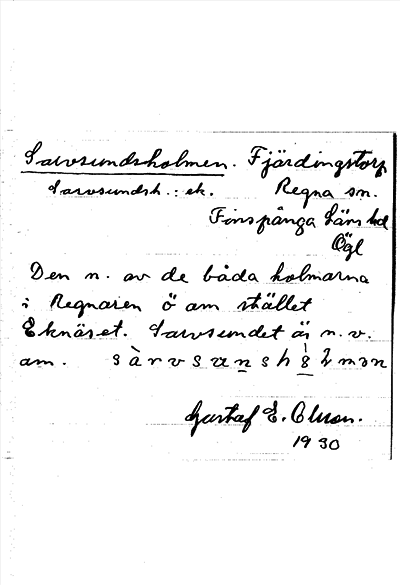 Sarvsundsholmen. Fjärdingstorp
Sarvsundsh.: ek. Regna sn.
Finspånga Läns hd
Ögl
Den n. av de båda holmarna
i Regnaren ö am stället
Eknäset. Sarvsundet är n. v.
am.
Gustaf E. Olson.
1930